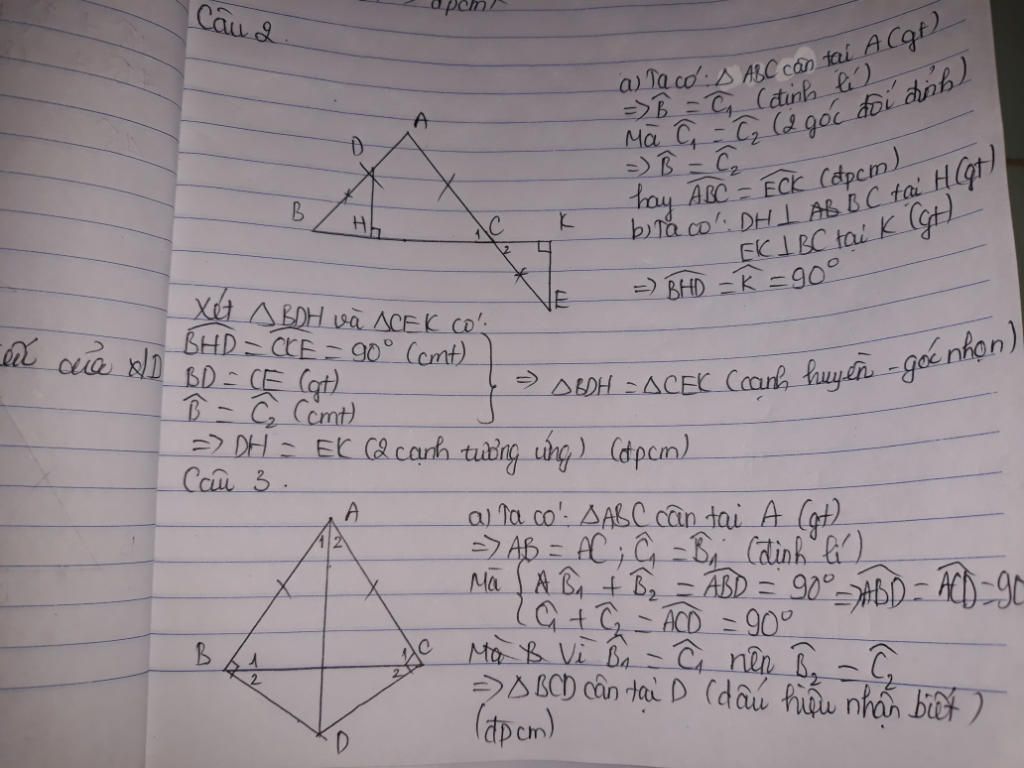 đpcm)
Câu 2.
a) Ta có: △ ABC cân tại A (gt)
=> B̂ = Ĉ₁ (định lí)
Mà Ĉ₁ = Ĉ₂ (2 góc đối đỉnh)
=> B̂ = Ĉ₂
hay ABC = ECK (đpcm)
b) Ta có: DH ⊥ AB BC tại H (gt)
EK ⊥ BC tại K (gt)
=> BHD = K̂ = 90°
A
D
B
H
1 C
2
K
E
Xét △BDH và △CEK có:
BHD = CKE = 90° (cmt)
BD = CE (gt)
B̂ = Ĉ₂ (cmt)
=> △BDH = △CEK (cạnh huyền - góc nhọn)
của
=> DH = EK (2 cạnh tương ứng) (đpcm)
Câu 3.
a) Ta có: △ABC cân tại A (gt)
=> AB = AC ; Ĉ₁ = B̂₁ (định lí)
Mà { A B̂₁ + B̂₂ = ABD = 90° => ABD = ACD = 90
Ĉ₁ + Ĉ₂ = ACD = 90°
Mà B Vì B̂₁ = Ĉ₁ nên B̂₂ = Ĉ₂
=> △BCD cân tại D (dấu hiệu nhận biết)
(đpcm)
A
1 2
B 1
2
1 C
2
D